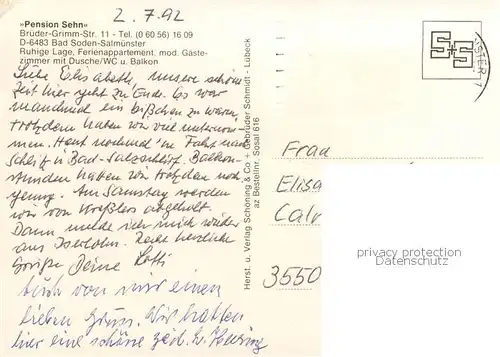 2.7.92
»Pension Sehn«
Brüder-Grimm-Str. 11 - Tel. (0 60 56) 16 09
D-6483 Bad Soden-Salmünster
Ruhige Lage, Ferienappartement, mod. Gäste-
zimmer mit Dusche/WC u. Balkon
Liebe Elisabeth, unsere schöne
Zeit hier geht zu Ende. Es war
manchmal ein bißchen zu warm,
trotzdem haben wir viel unternom-
men. Heut nochmal 'ne Fahrt nach
Schlitz u. Bad-Salzschlirf. Balkon-
stunden hatten wir trotzdem noch
genug. Am Samstag werden
wir von abgeholt.
Dann melde ich mich wieder
aus Iserlohn. Recht herzliche
Grüße Deine Lotti
Auch von mir einen
lieben Gruss. Wir hatten
hier eine schöne Zeit.
Herst. u. Verlag Schöning & Co + Gebrüder Schmidt - Lübeck
az Bestellnr. Sosal 616
S+S
Frau
Elisa
Calv
3550
privacy protection
Datenschutz